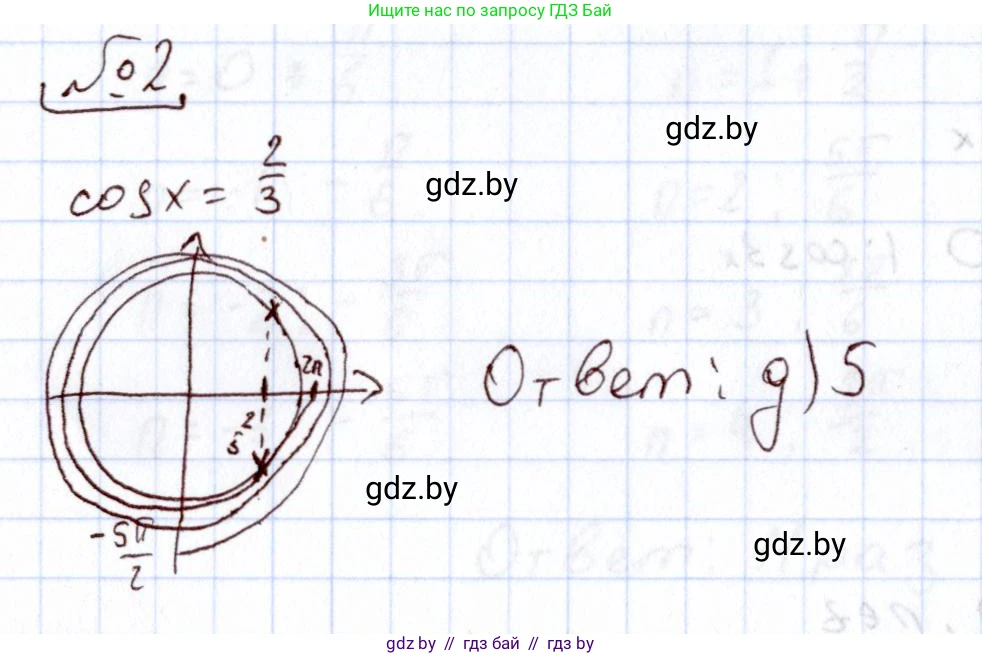 Ищите нас по запросу ГДЗ Бай
№2
gdz.by
gdz.by
cos x = 2/3
2π
Ответ: д) 5
2/3
gdz.by
-5π/2
gdz.by
gdz by // гдз бай // гдз by